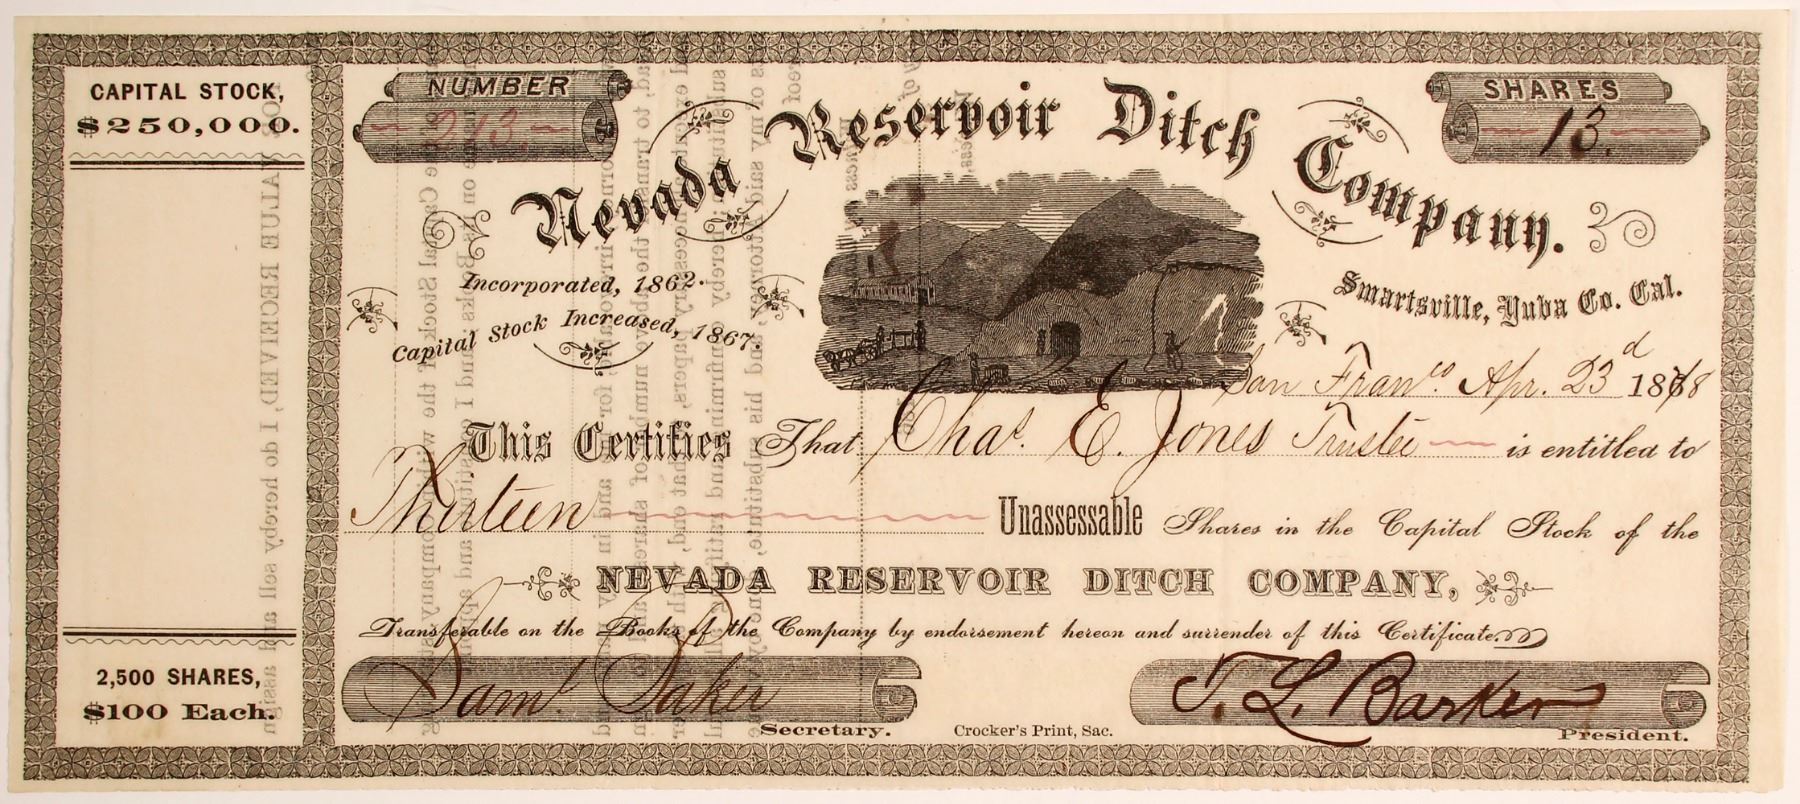 CAPITAL STOCK,
$250,000.
2,500 SHARES,
$100 Each.
NUMBER
213.
SHARES
13.
Nevada Reservoir Ditch Company.
Incorporated, 1862.
Capital Stock Increased, 1867.
Smartsville, Yuba Co. Cal.
San Franco. Apr. 23d 1878
This Certifies That Chas. E. Jones Trustee is entitled to
Thirteen Unassessable Shares in the Capital Stock of the
NEVADA RESERVOIR DITCH COMPANY,
Transferable on the Books of the Company by endorsement hereon and surrender of this Certificate.
Saml. Baker
Secretary.
Crocker's Print, Sac.
T. L. Barker
President.
VALUE RECEIVED, I do hereby sell and assign